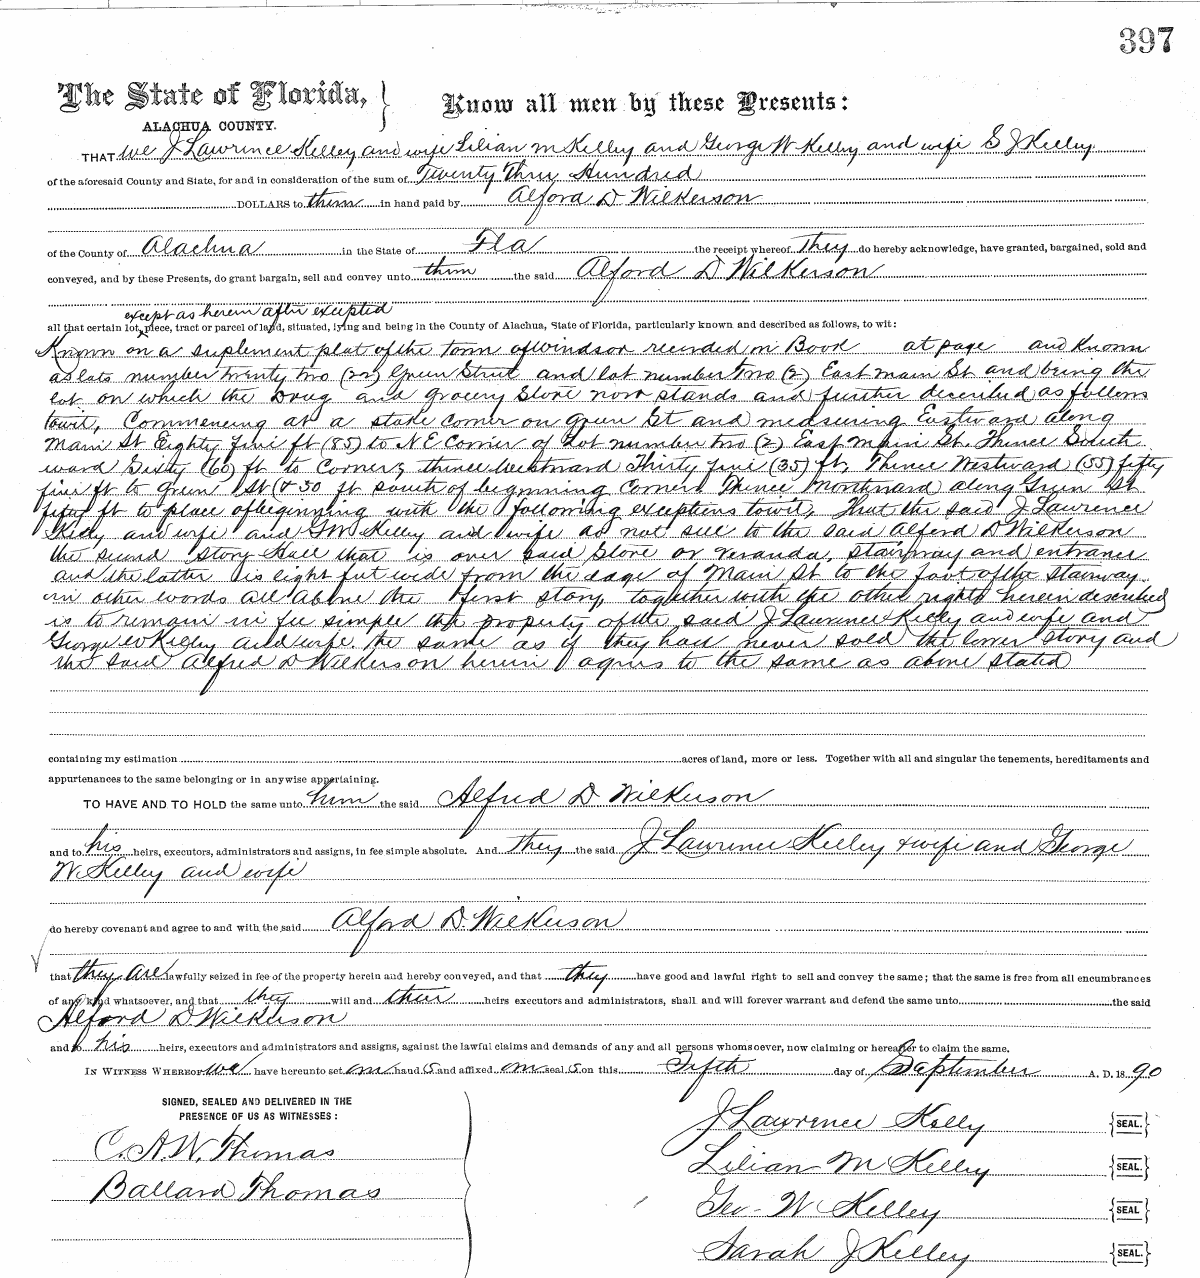 397
The State of Florida, } Know all men by these Presents:
ALACHUA COUNTY.
THAT we J Lawrence Kelley and wife Lilian M Kelley and George W Kelley and wife S J Kelley
of the aforesaid County and State, for and in consideration of the sum of Twenty Three Hundred
DOLLARS to them in hand paid by Alford D Wilkerson
of the County of Alachua in the State of Fla the receipt whereof They do hereby acknowledge, have granted, bargained, sold and
conveyed, and by these Presents, do grant bargain, sell and convey unto them the said Alford D Wilkerson
except as herein after excepted
all that certain lot, piece, tract or parcel of land, situated, lying and being in the County of Alachua, State of Florida, particularly known and described as follows, to wit:
Known on a suplement plat of the town of Windsor recorded in Book at page and Known
as lots number twenty two (22) Green Street and lot number Two (2) East main St and being the
lot on which the Drug and grocery Store now stands and further described as follows
towit, Commencing at a stake corner on green St and measuring Eastward along
Main St Eighty five ft (85) to N E Corner of Lot number two (2) East Main St. Thence South
ward Sixty (60) ft to Corner, thence Westward Thirty five (35) ft, Thence Westward (55) fifty
five ft to green St (& 50 ft south of beginning corner. Thence Northward) along Green St
fifty ft to place of beginning with the following exceptions towit, That the said J Lawrence
Kelly and wife and G W Kelley and wife do not sell to the said Alford D Wilkerson
the second story Hall that is over said Store or veranda, stairway and entrance
and the latter is eight feet wide from the edge of Main St to the foot of the stairway.
in other words all above the first story, together with the other rights herein described
is to remain in fee simple the property of the said J Lawrence Kelly and wife and
George W Kelley and wife the same as if they had never sold the lower story and
the said Alfred D Wilkerson herein agrees to the same as above stated
containing my estimation acres of land, more or less. Together with all and singular the tenements, hereditaments and
appurtenances to the same belonging or in anywise appertaining.
TO HAVE AND TO HOLD the same unto him the said Alfred D Wilkerson
and to his heirs, executors, administrators and assigns, in fee simple absolute. And they the said J Lawrence Kelley & wife and George
W Kelley and wife
do hereby covenant and agree to and with the said Alford D. Wilkerson
that they are lawfully seized in fee of the property herein and hereby conveyed, and that they have good and lawful right to sell and convey the same; that the same is free from all encumbrances
of any kind whatsoever, and that they will and their heirs executors and administrators, shall and will forever warrant and defend the same unto the said
Alford D Wilkerson
and to his heirs, executors and administrators and assigns, against the lawful claims and demands of any and all persons whomsoever, now claiming or hereafter to claim the same.
IN WITNESS WHEREOF we have hereunto set our hand s and affixed our seal s on this Fifth day of September A. D. 18 90
SIGNED, SEALED AND DELIVERED IN THE
PRESENCE OF US AS WITNESSES:
C. A. W. Thomas
Ballard Thomas
J Lawrence Kelly {SEAL.}
Lilian M Kelley {SEAL.}
Geo - W Kelley {SEAL}
Sarah J Kelley {SEAL.}